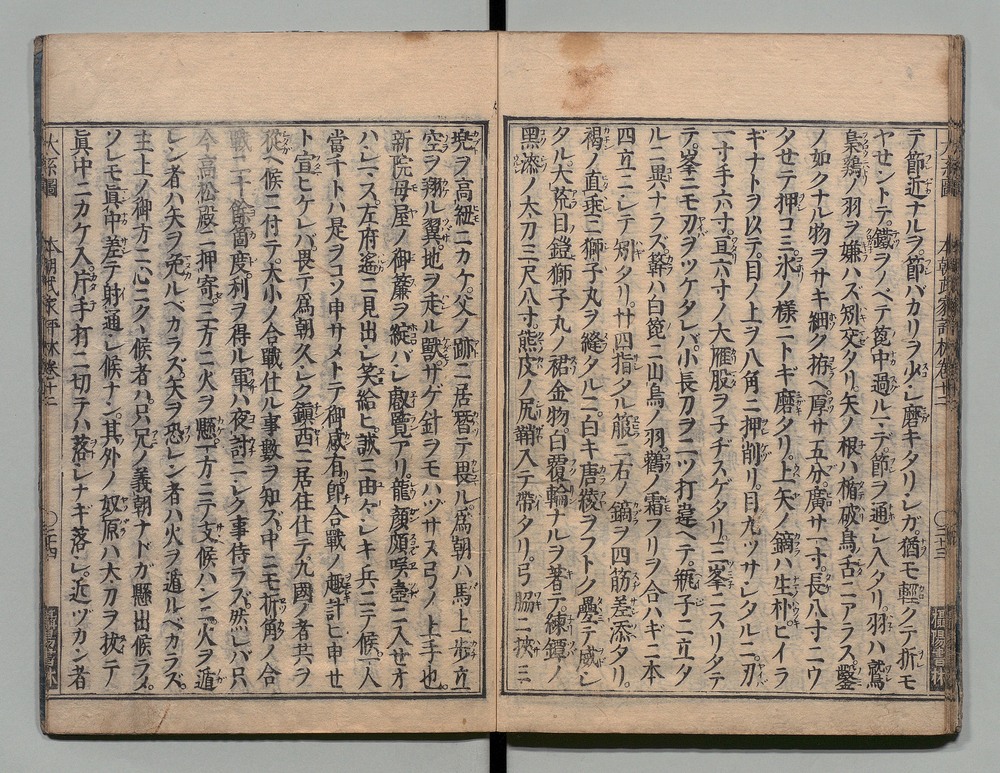 テ節近ナルヲ節バカリヲ少シ磨キタリシガ猶モ輕クノテ折モ
ヤセントテ鐵ヲノベテ箆中過ルマデ節ヲ通シ入タリ羽ハ鷲
梟鶏ノ羽ヲ嫌ハズ矧交タリ矢ノ根ハ楯破鳥舌ニアラス鑿
ノ如クナル物ヲサキ細ク拵ヘ厚サ五分廣サ一寸長八寸ニウ
タせテ押コミ氷ノ様ニトギ磨タリ上矢ノ鏑ハ生朴ヒイラ
ギナトヲ以テ目ノ上ヲ八角ニ押削リ目九ツサシタルニ刃
一寸手六寸亘六寸ノ大雁股ヲ子ヂスゲタリ三峯ニスリタテ
テ峯ニモ刃ヲツケタレバ小長刀ヲ二ツ打違ヘテ瓶子ニ立タ
ルニ異ナラズ簳ハ白箆ニ山鳥ノ羽鶴ノ霜フリヲ合ハギニ本
四立ニシテ矧タリ廿四指タル箙ニ右ノ鏑ヲ四筋差添タリ
褐ノ直垂ニ獅子丸ヲ縫タルニ白キ唐綾ヲフトク疊テ威シ
タル大荒目鎧獅子丸ノ裾金物白覆輪ナルヲ著テ練鐔ノ
黑漆ノ大刀三尺八寸熊皮ノ尻鞘入テ帶タリ弓脇ニ挾ミ
大系圖
本朝武家評林卷十二
二十三
攝陽書林
兜ヲ高紐ニカケ父ノ跡ニ居替テ畏ル爲朝ハ馬上歩立
空ヲ翔ル翼地ヲ走ル獸サゲ針ヲモハヅサヌ弓ノ上手也
新院母屋ノ御簾ヲ綻バシ叡覽アリ龍顔頗咲壷ニ入せオ
ハシマス左府遙ニ見出シ笑給ヒ誠ニ由々シキ兵ニテ候一人
當千トハ是ヲコソ申サメトテ御感有即合戰ノ趣計ヒ申せ
ト宣ヒケレバ畏テ爲朝久シク鎭西ニ居住仕テ九國ノ者共ヲ
從ヘ候ニ付テ大小ノ合戰仕ル事數ヲ知ズ中ニモ折角ノ合
戰二十餘箇度利ヲ得ル軍ハ夜討ニシク事侍ラズ然レバ只
今高松殿ニ押寄三方ニ火ヲ懸一方ニテ支候ハンニ火ヲ遁
レン者ハ矢ヲ免ルベカラズ矢ヲ恐レン者ハ火ヲ遁ルベカラズ
主上ノ御方ニ心ニクヽ候者ハ只兄ノ義朝ナドガ懸出候ラメ
ソレモ眞中差テ射通シ候ナン其外ノ奴原ハ太刀ヲ拔テ
眞中ニカケ入片手打ニ切テハ落シナギ落シ近ヅカン者
大系圖
本朝武家評林卷十二
二十四
攝陽書林